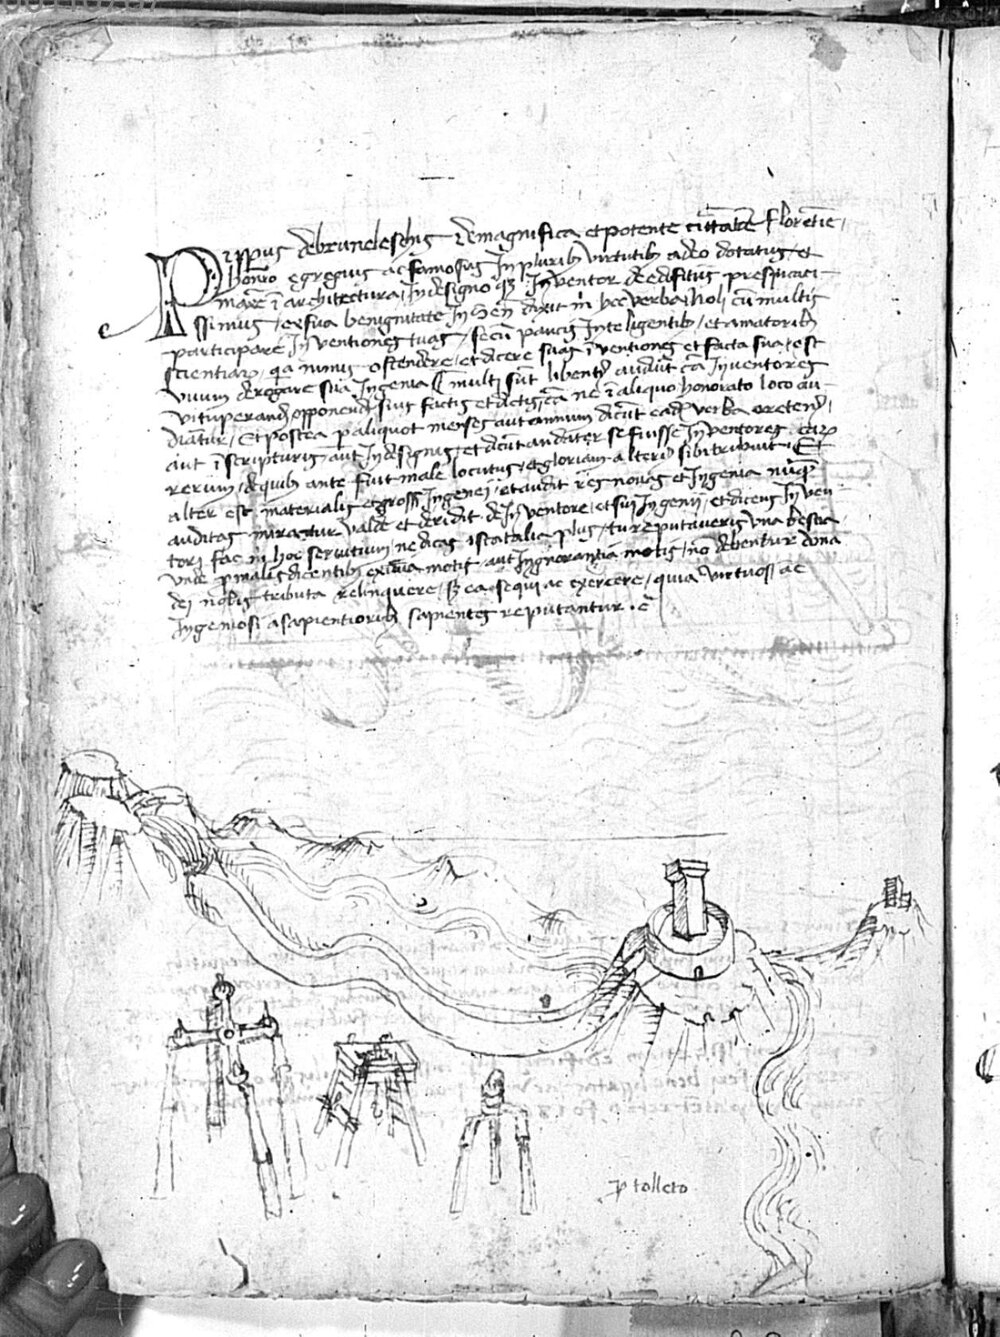 Pippus debruneleschis demagnifica et potente ciuitate Florentie,
honoro egregius ac famosus In pluribꝫ virtutibꝫ a deo dotatus, et
maxe ī architectura, Indesigno qꝫ Inventor de edifitiis prespicaci-
ssimus, ex sua benignitate In Sen dixit m hec verba, Noli cū multis
participare In ventiones tuas, secū paucis Inteligentibꝫ, et amatoribꝫ
scientiaꝝ, qa nimis ostendere, et dicere suas īventiones et facta sua, est
unum derogare sua Ingenia multi sūt libenter audiūt cā Inventores
vituperandi opponendi suis factis et dictis, cā ne ī aliquo honorato loco au-
diatur, Et postea p aliquot menses aut annum dicūt eadē verba oretenꝰ,
aut ī scripturis, aut Indesignis, et dicūt audaciter se fuisse Inventores eaꝝ
rerum, dequibꝫ ante fuit male locutus, et gloriam alteriꝰ sibi tribuit. Et
alter est materialis et grossi Ingenei, et audit res novas et Ingenia nūqꝫ
auditas miratur valde et deridit de In ventore, et sui Ingenii, et dicens In ven-
tori fac m hoc servitium, ne dicas ista talia plus, tu reputaveris una bestia
Unde p malis dicentibꝫ ex īvidia motis, aut Ingnorantia motis, nō debentur dona
dei nobis tributa relinquere, sꝫ ea sequi ac exercere, quia virtuosi ac
Ingeniosi a sapientioribꝫ sapientes reputantur. etc
ꝑ tolleto